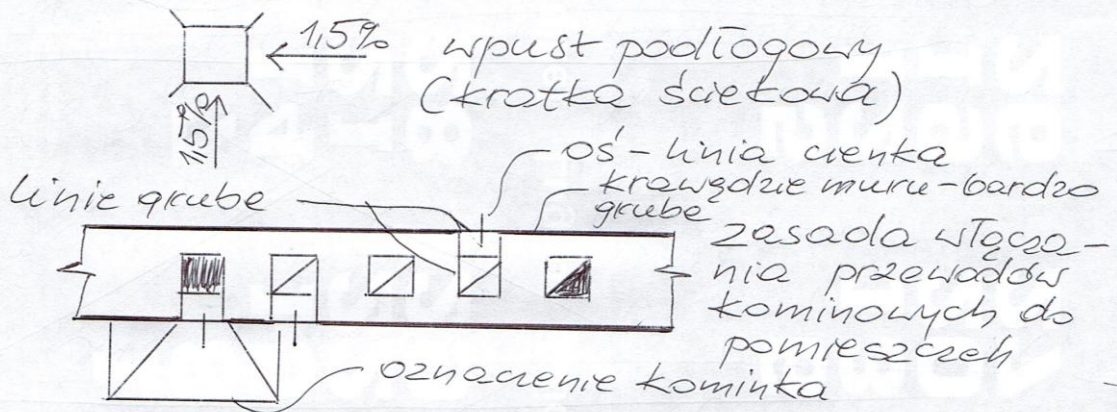 1,5%
wpust podłogowy
(kratka ściekowa)
1,5%
oś - linia cienka
krawędzie muru - bardzo
grube
linie grube
zasada włącza-
nia przewodów
kominowych do
pomieszczeń
oznaczenie kominka